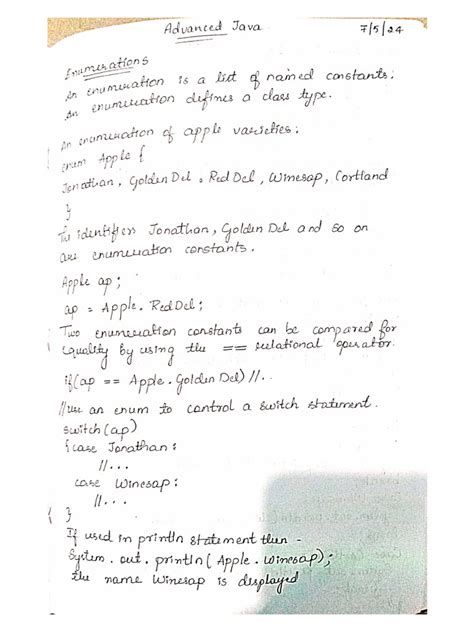 Advanced Java
7/5/24
Enumerations
An enumeration is a list of named constants.
An enumeration defines a class type.
An enumeration of apple varieties:
enum Apple {
Jonathan, Golden Del, Red Del, Winesap, Cortland
}
The identifiers Jonathan, Golden Del and so on
are enumeration constants.
Apple ap;
ap = Apple. RedDel;
Two enumeration constants can be compared for
equality by using the == relational operator.
if(ap == Apple. Golden Del) //..
//use an enum to control a switch statement.
switch(ap)
{ case Jonathan:
//...
case Winesap:
//...
}
If used in println statement then -
System. out. println( Apple. Winesap);
the name Winesap is displayed